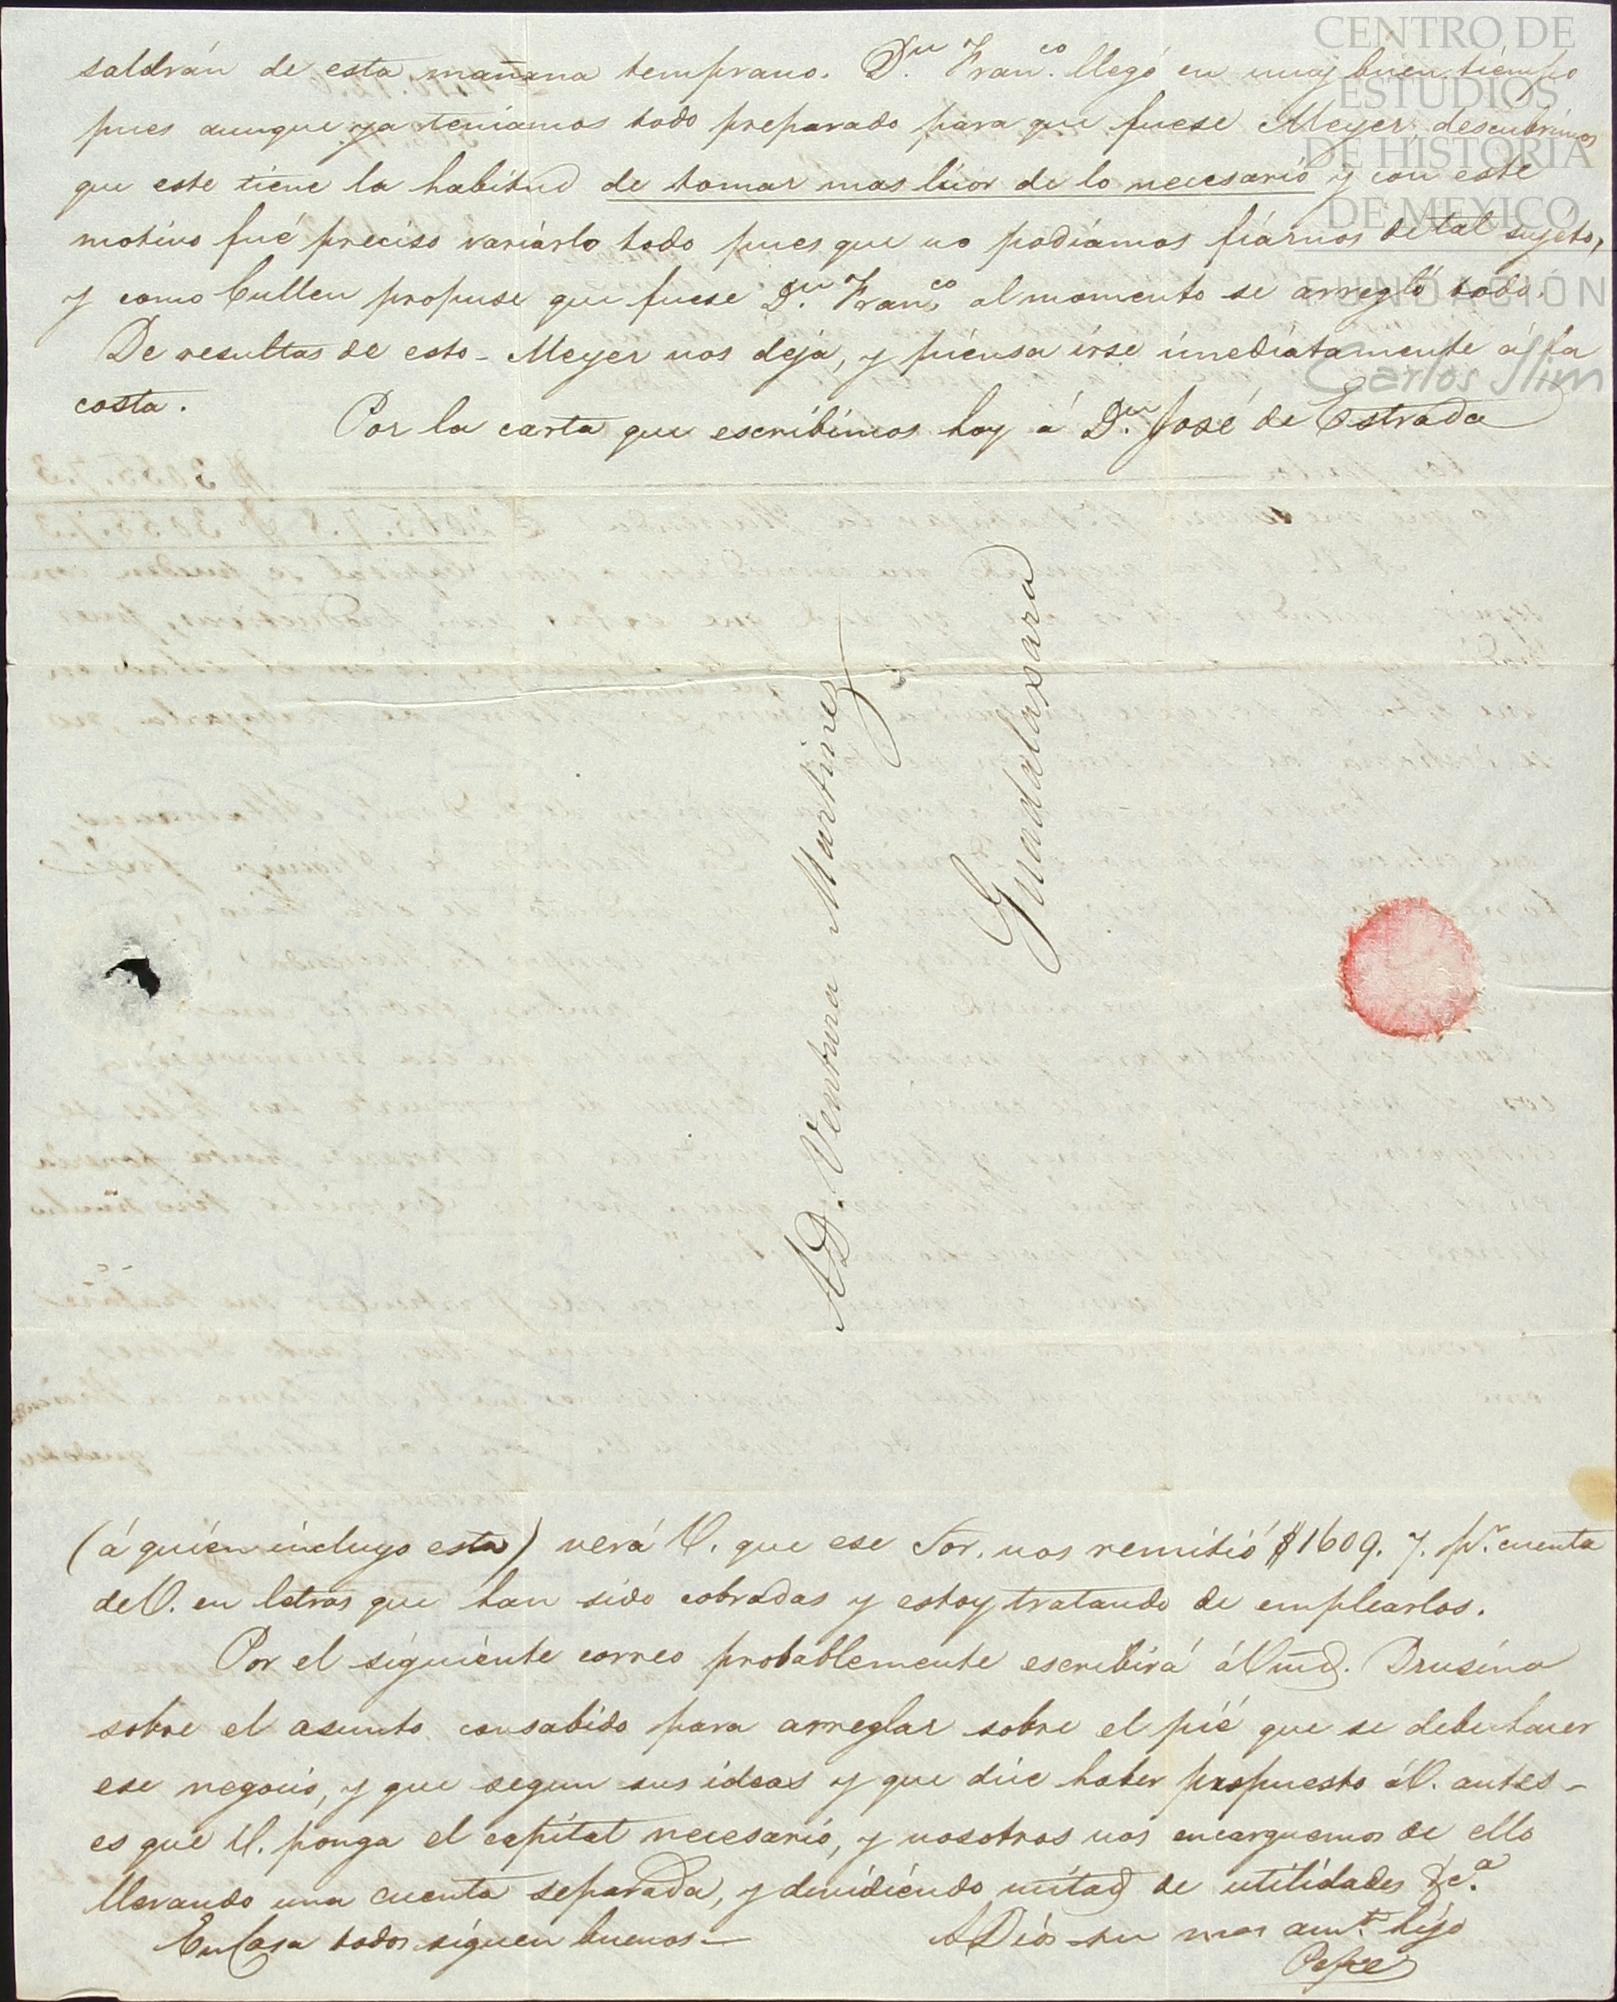 saldrán de esta mañana temprano. D.ⁿ Fran.ᶜᵒ llegó en muy buen tiempo
pues aunque ya teniamos todo preparado para que fuese Meyer, descubrimos
que este tiene la habitud de tomar mas licor de lo necesario y con este
motivo fué preciso variarlo todo pues que no podiamos fiárnos de tal sujeto,
y como Cullen propuse que fuese D.ⁿ Fran.ᶜᵒ al momento se arregló todo.
De resultas de esto - Meyer nos deja, y piensa irse imediatamente á la
costa.
Por la carta que escribimos hoy á D.ⁿ José de Estrada
A D. Ventura Martinez
Guadalaxara
(á quien incluyo esta) verá V. que ese Sor. nos remitió $1609. 7. pr. cuenta
de V. en letras que han sido cobradas y estoy tratando de emplearlos.
Por el siguiente correo probablemente escribirá á Vmd. Drusina
sobre el asunto consabido para arreglar sobre el pié que se debe hacer
ese negocio, y que segun sus ideas y que dice haber propuesto á V. antes -
es que V. ponga el capital necesario, y nosotros nos encarguemos de ello
llevando una cuenta separada, y dividiendo mitad de utilidades &c.ᵃ
En Casa todos siguen buenos —
A Dios su mas amᵗᵉ hijo
Pepe
CENTRO DE
ESTUDIOS
DE HISTORIA
DE MEXICO
FUNDACIÓN
Carlos Slim